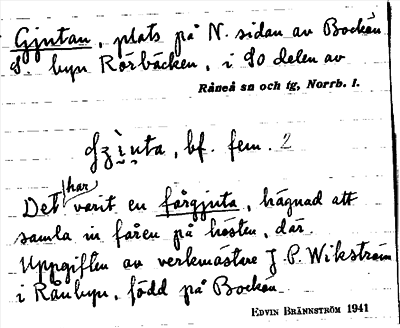 Gjutan, plats på N. sidan av Bockön
S. byn Rörbäcken, i SO delen av
Råneå sn och tg, Norrb. l.
bf. fem. 2
har
Det varit en fårgjuta, hägnad att
samla in fåren på hösten, där.
Uppgiften av verkmästare J. P. Wikström
i Rånbyn, född på Bockön.
EDVIN BRÄNNSTRÖM 1941